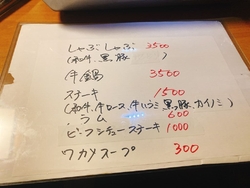 しゃぶしゃぶ 3500
(和牛、黒豚 )
牛鍋 3500
ステーキ 1500
(和牛、牛ロース、牛ハラミ、黒豚、カイノミ)
・ラム 600
ビーフシチューステーキ 1000
ワカメスープ 300